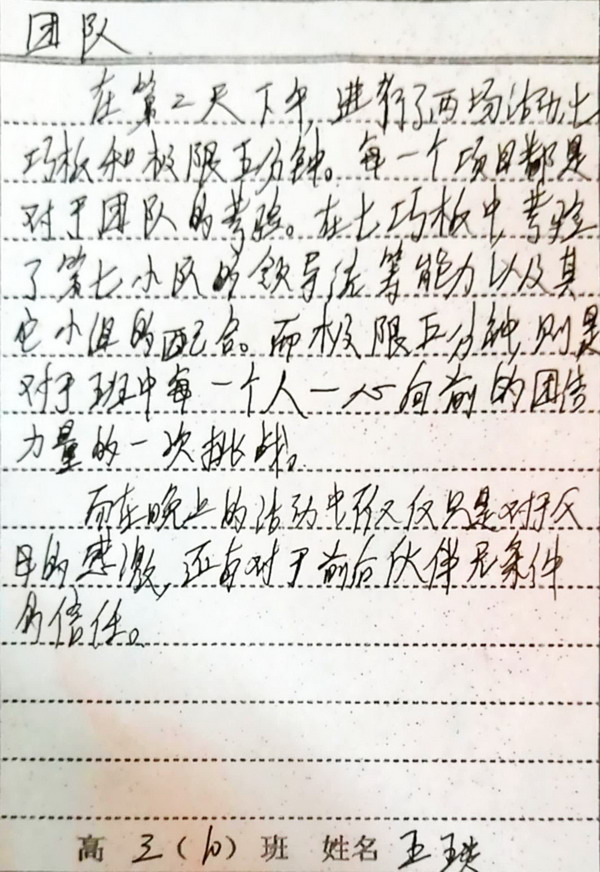 团队
在第二天下午,进行了两场活动,七
巧板和极限五分钟。每一个项目都是
对于团队的考验。在七巧板中,考验
了第七小队的领导统筹能力以及其
它小组的配合。而极限五分钟,则是
对于班中每一个人一心向前的团结
力量的一次挑战。
而在晚上的活动中不仅仅只是对于父
母的感激,还有对于前后伙伴无条件
的信任。
高三(10)班 姓名 王